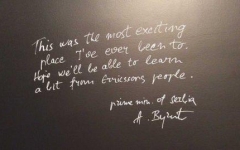 This was the most exciting
place I've ever been to.
Hope we'll be able to learn
a bit from Ericssons people.
prime min. of Serbia
A.